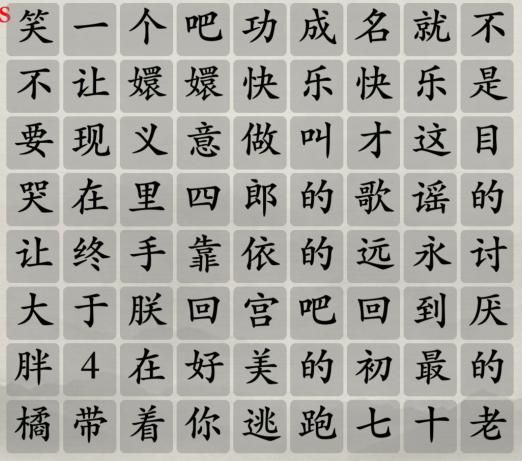 S
笑一个吧功成名就不
不让嬛嬛快乐快乐是
要现义意做叫才这目
哭在里四郎的歌谣的
让终手靠依的远永讨
大于朕回宫吧回到厌
胖4在好美的初最的
橘带着你逃跑七十老